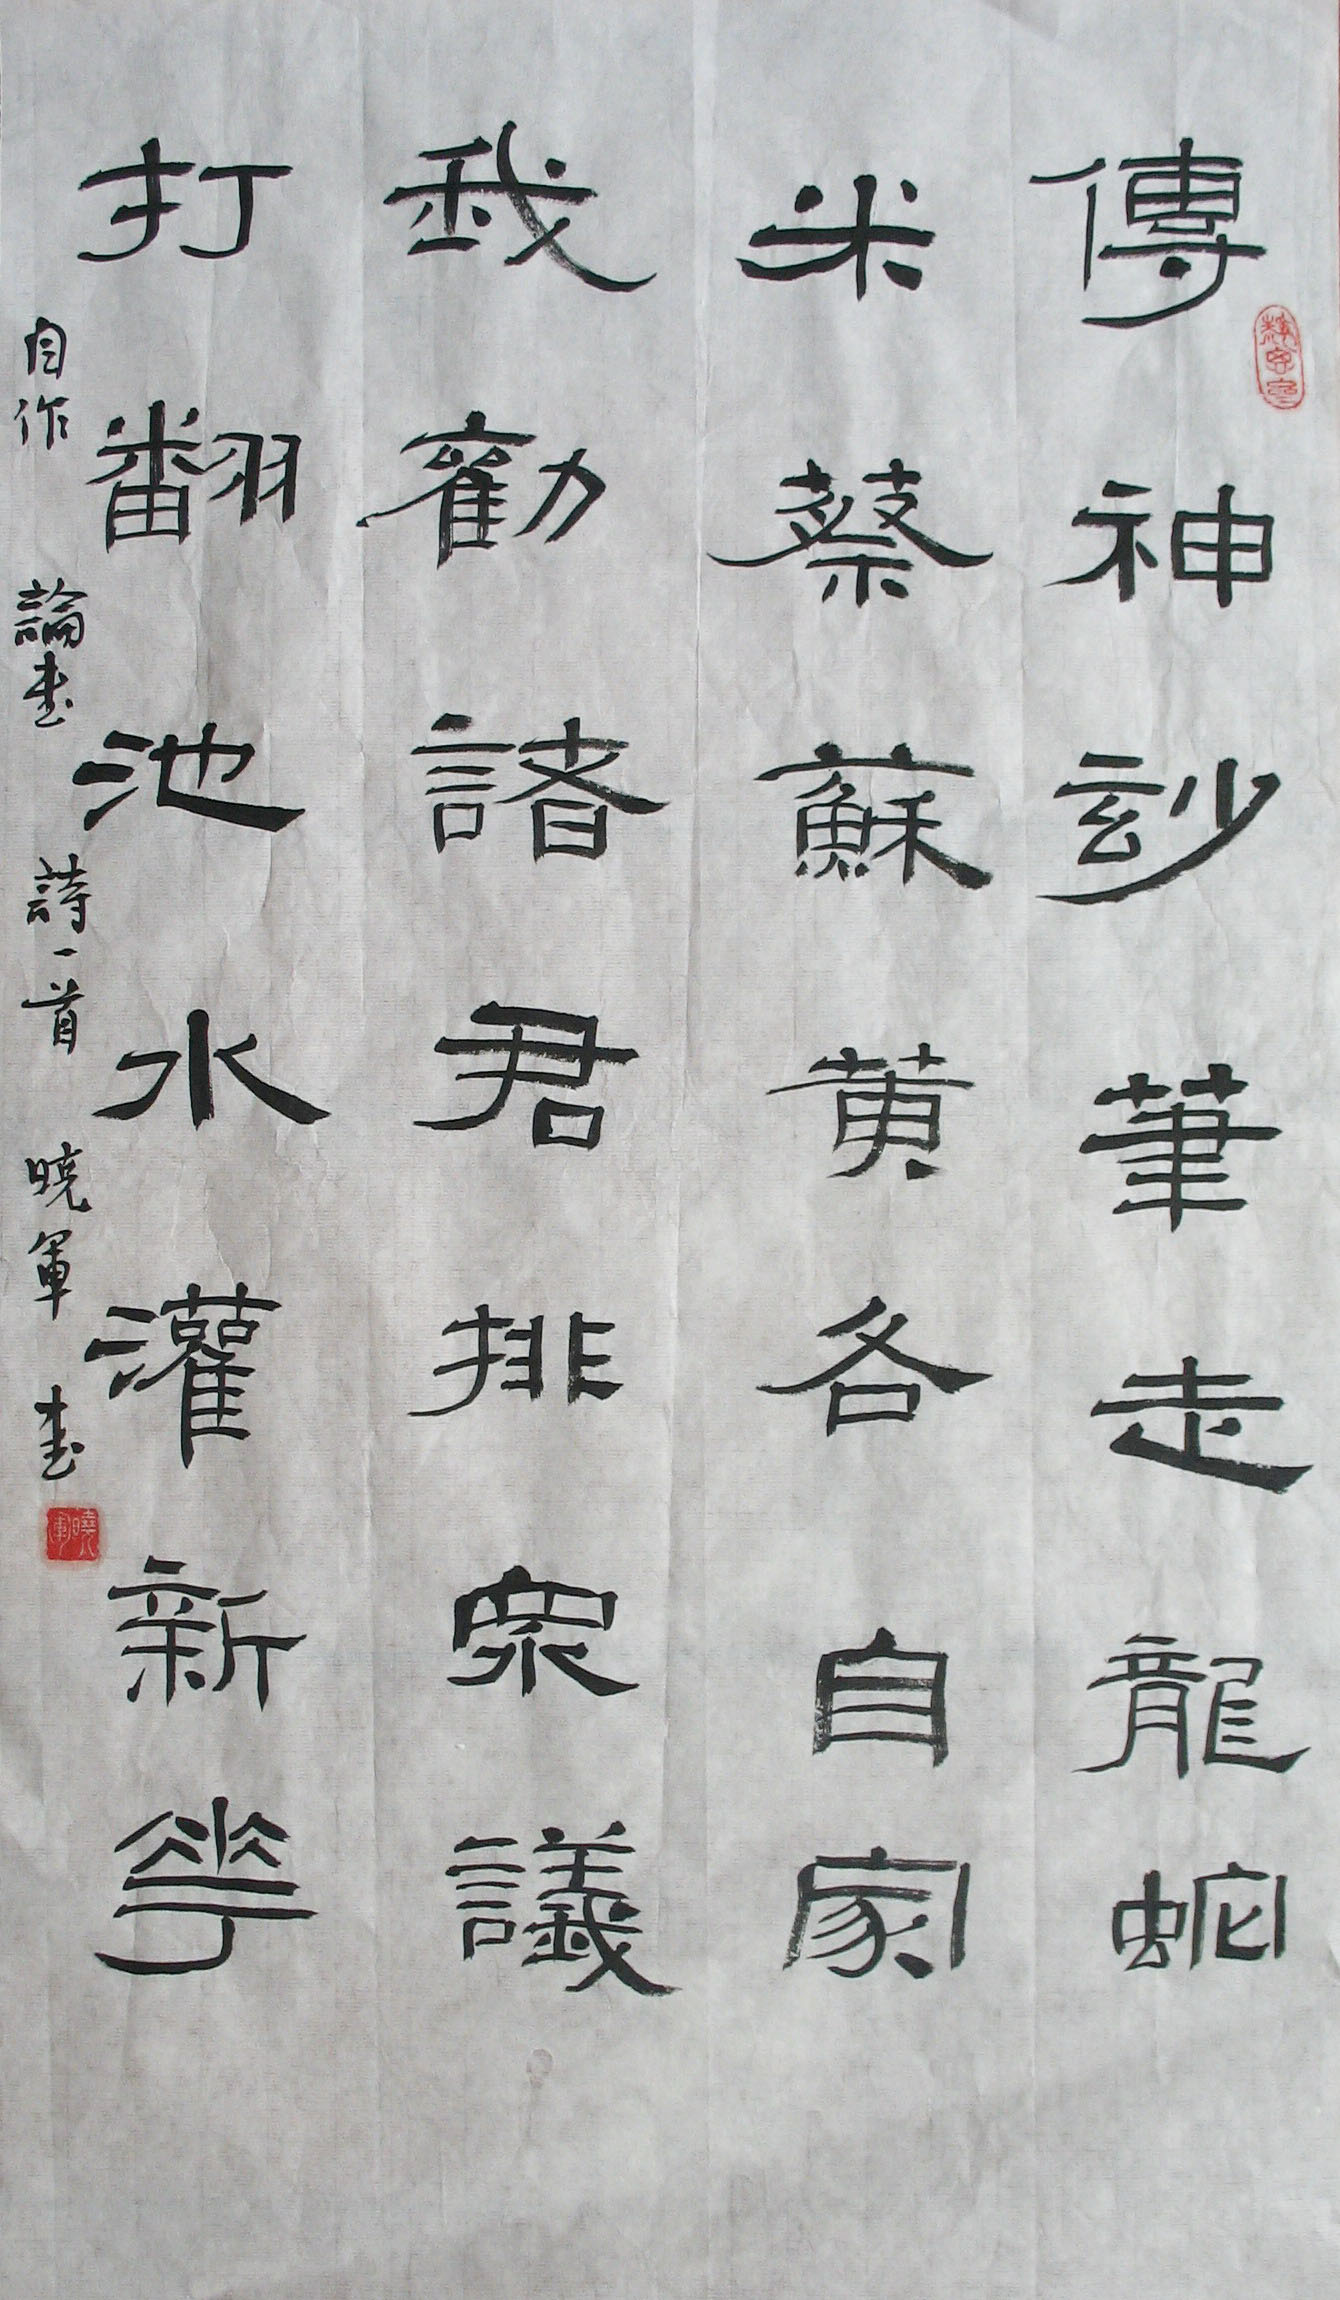 傳神玅筆走龍蛇
米蔡蘇黄各自家
我勸諸君排眾議
打翻池水灌新花
自作論書詩一首 曉軍書
曉軍